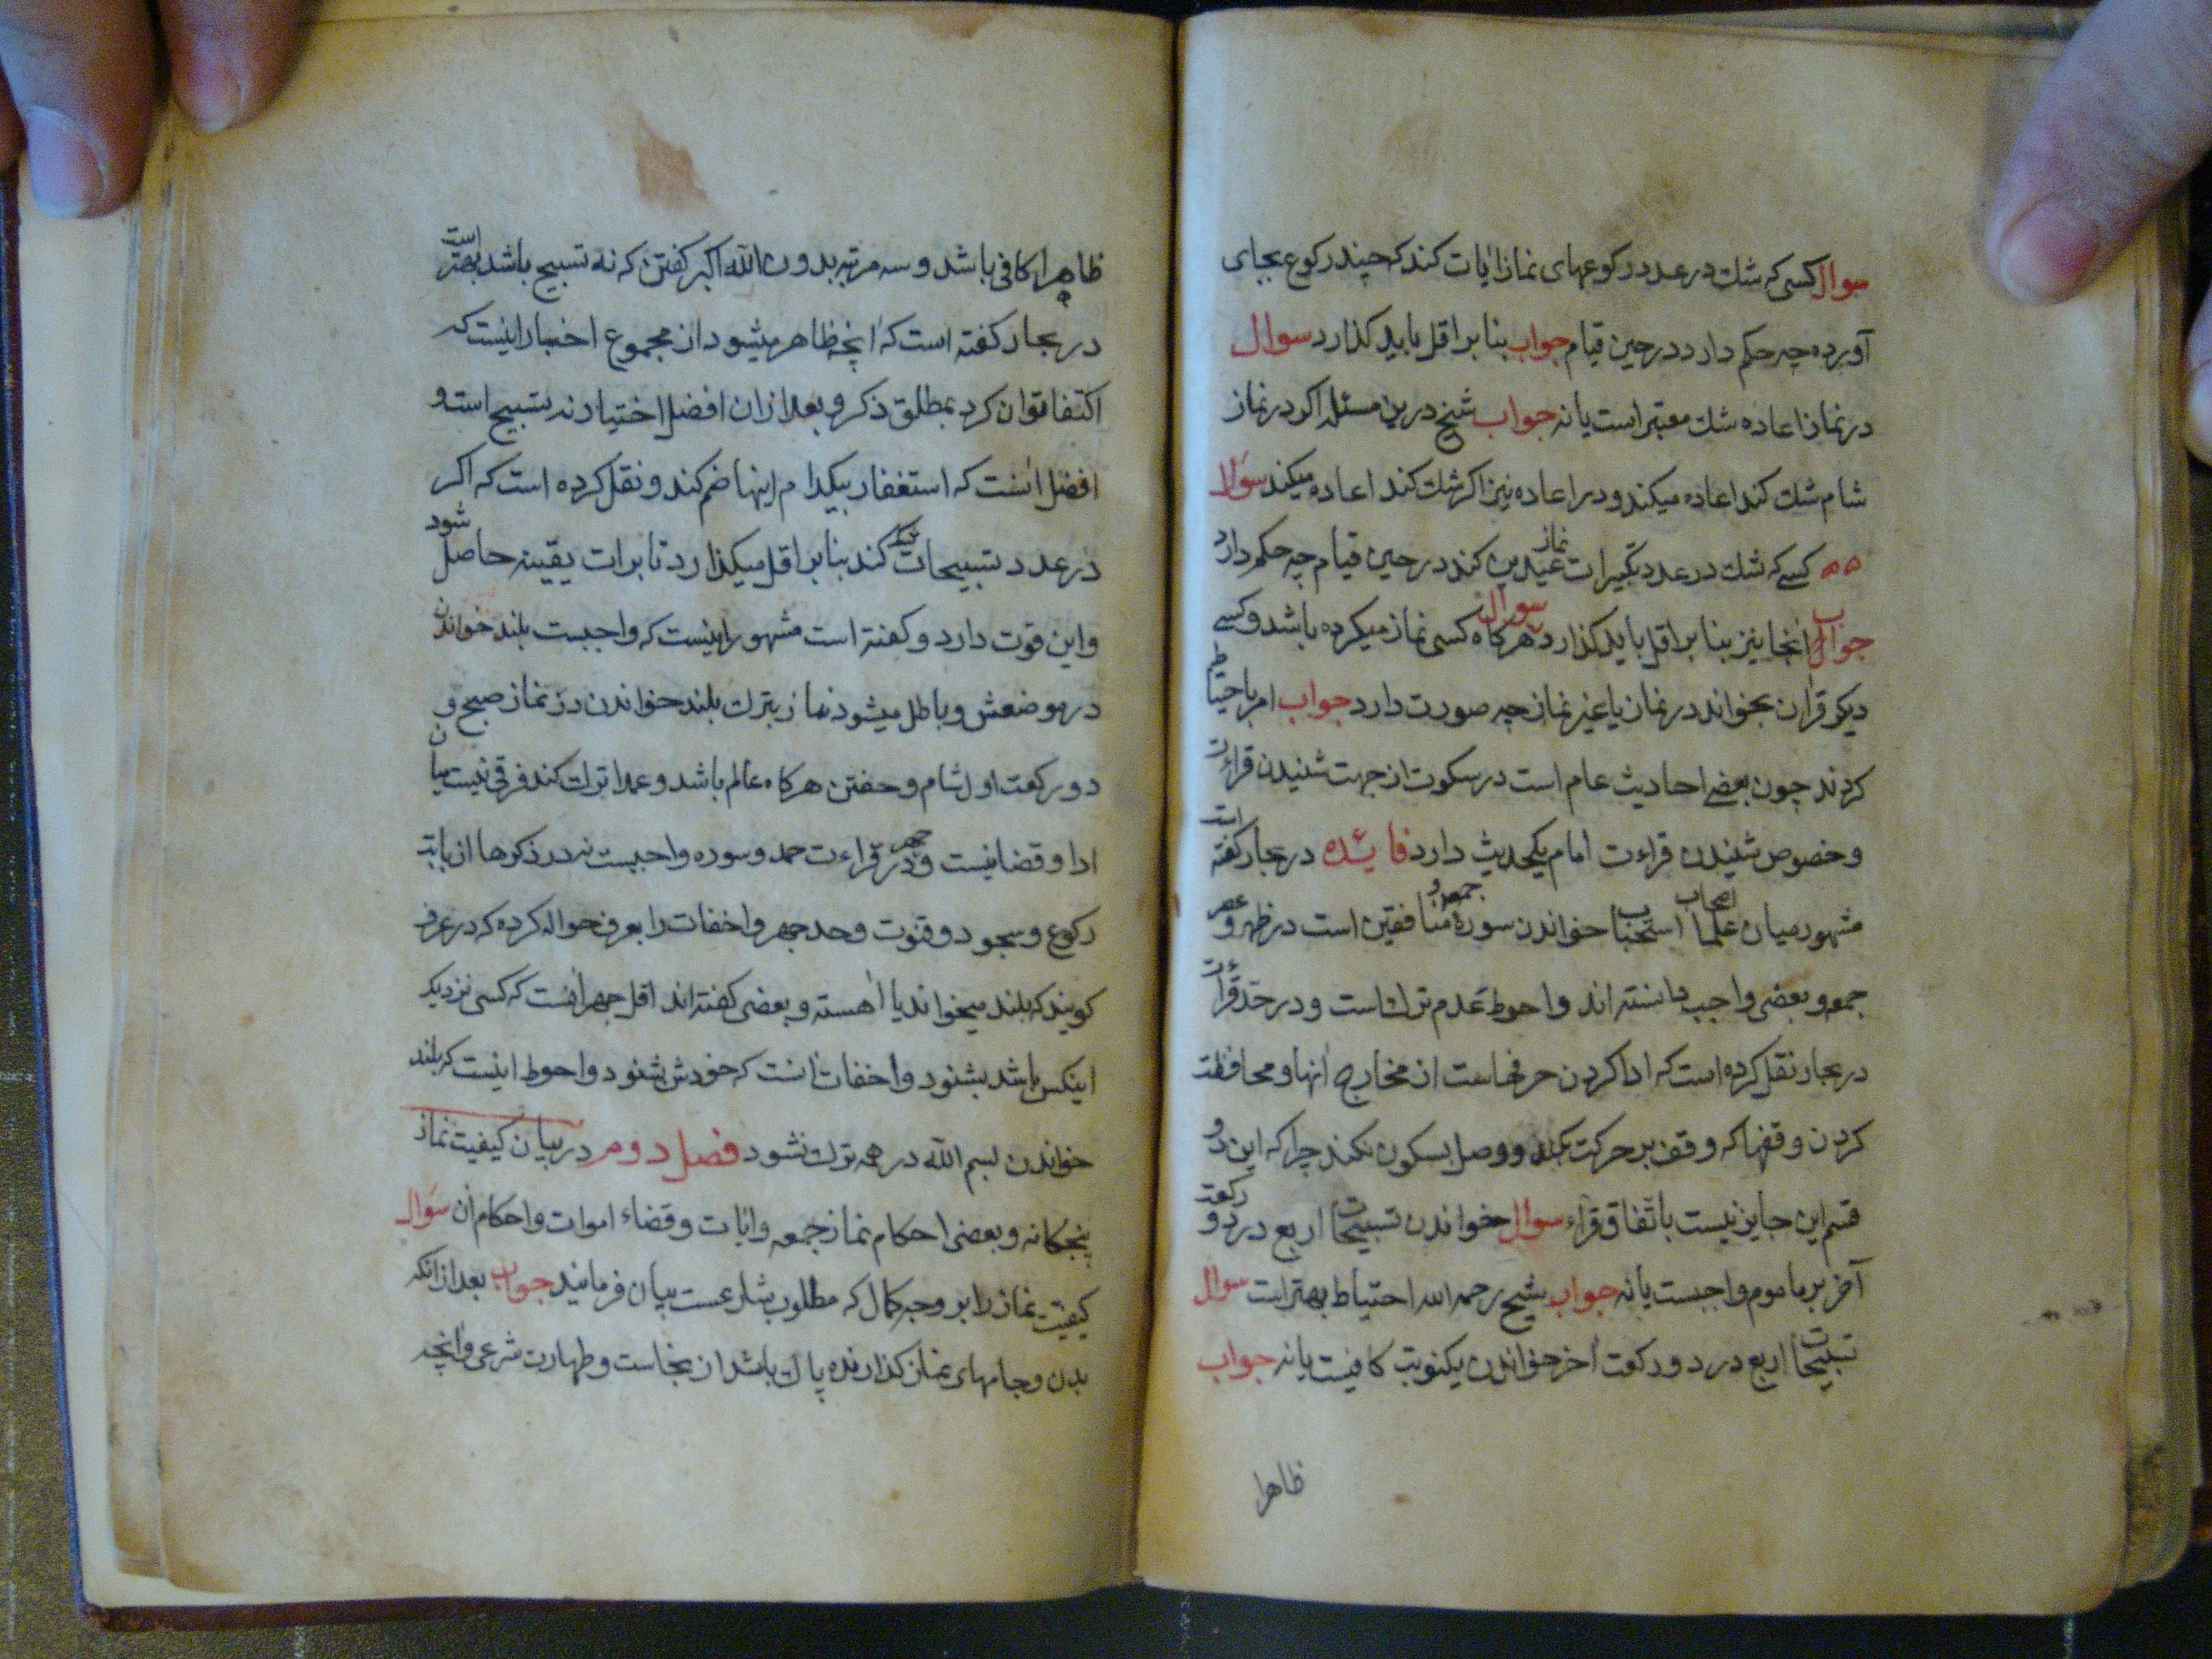 سوال کسی که شك در عدد رکوعهای نماز ایات کند که چند رکوع بجای
آورده چه حکم دارد در حین قیام جواب بنا بر اقل باید کذارد سوال
در نماز اعاده شك معتبر است یا نه جواب شیخ درین مسئله اکر در نماز
شام شك کند اعاده میکند و در اعاده نیز اکر شك کند اعاده میکند سوال
کسے که شك در عدد تکبیرات نماز عیدین کند در حین قیام چه حکم دارد
جواب انجا نیز بنا بر اقل باید کذارد سوال هرکاه کسی نماز میکرده باشد و کسے
دیکر قرآن بخواند در نماز یا غیر نماز چه صورت دارد جواب امر باحتیاط
کردند چون بعضے احادیث عام است در سکوت از جهت شنیدن قراءت
و خصوص شنیدن قراءت امام یکحدیث دارد فایئده در بحار کفته است
مشهور میان علما اصحاب استحباب خواندن سورۀ جمعه و منافقین است در ظهر و عصر
جمعه و بعضی واجب دانسته اند و احوط عدم ترك است و در حد قرائت
در بحار نقل کرده است که ادا کردن حرفهاست از مخارج انها و محافظت
کردن وقفها که وقف بر حرکت نکند و وصل بسکون نکند چرا که این دو
قسم این جایز نیست باتفاق قراء سوال خواندن تسبیحات اربع در دو رکعت
آخر بر ماموم واجبست یا نه جواب شیخ رحمه الله احتیاط بهتر است سوال
تسبیحات اربع در دو رکعت اخر خواندن یکنوبت کافیست یا نه جواب
ظاهرا
ظاهرا کافی باشد و سه مرتبه بدون الله اکبر کفتن که نه تسبیح باشد بهتر است
در بحار کفته است که انچه ظاهر میشود از مجموع اخبار اینست که
اکتفا توان کرد بمطلق ذکر و بعد از ان افضل اختیار نه تسبیح است و
افضل انست که استغفار بیکدام اینها ضم کند و نقل کرده است که اکر
در عدد تسبیحات شك کند بنا بر اقل میکذارد تا برات یقینه حاصل شود
و این قوت دارد و کفته است مشهور اینست که واجبست بلند خواندن
در موضعش و باطل میشود نماز بترك بلند خواندن در نماز صبح و
دو رکعت اول شام و خفتن هرکاه عالم باشد و عمدا ترك کند فرقی نیست میان
ادا و قضا نیست و جهر در قراءت حمد و سوره واجبست نه در ذکرها از بابت
رکوع و سجود و قنوت و حد جهر و اخفات را بعرف حواله کرده که در عرف
کویند که بلند میخواند یا اهسته و بعضی کفته اند اقل جهر انست که کسی نزدیك
اینکس باشد بشنود و اخفات انست که خودش شنود و احوط اینست که بلند
خواندن بسم الله در همه ترك نشود فصل دوم در بیان کیفیت نماز
پنجکانه و بعضی احکام نماز جمعه و ایات و قضاء اموات و احکام ان سوال
کیفیت نماز را بر وجه کمال که مطلوب شارعست بیان فرمایند جواب بعد از انکه
بدن و جامهای نماز کذارنده پاك باشد از نجاست و طهارت شرعی و انچه